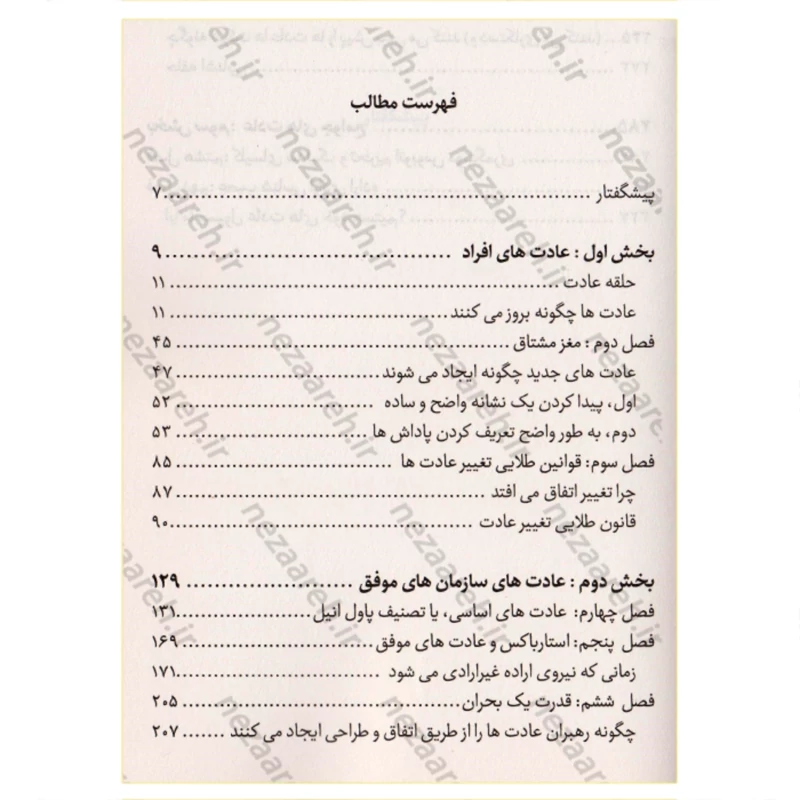 فهرست مطالب
پیشگفتار ........ ۷
بخش اول : عادت های افراد ........ ۹
حلقه عادت ........ ۱۱
عادت ها چگونه بروز می کنند ........ ۱۱
فصل دوم : مغز مشتاق ........ ۴۵
عادت های جدید چگونه ایجاد می شوند ........ ۴۷
اول، پیدا کردن یک نشانه واضح و ساده ........ ۵۲
دوم، به طور واضح تعریف کردن پاداش ها ........ ۵۳
فصل سوم: قوانین طلایی تغییر عادت ها ........ ۸۵
چرا تغییر اتفاق می افتد ........ ۸۷
قانون طلایی تغییر عادت ........ ۹۰
بخش دوم : عادت های سازمان های موفق ........ ۱۲۹
فصل چهارم: عادت های اساسی، یا تصنیف پاول انیل ........ ۱۳۱
فصل پنجم: استارباکس و عادت های موفق ........ ۱۶۹
زمانی که نیروی اراده غیرارادی می شود ........ ۱۷۱
فصل ششم: قدرت یک بحران ........ ۲۰۵
چگونه رهبران عادت ها را از طریق اتفاق و طراحی ایجاد می کنند ....... ۲۰۷
nezaareh.ir